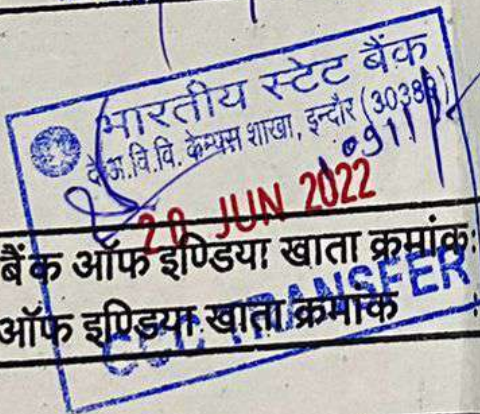 भारतीय स्टेट बैंक
दे.अ.वि.वि. केम्पस शाखा, इन्दौर (30388)
JUN 2022
बैंक ऑफ इण्डिया खाता क्रमांक:
ऑफ इण्डिया खाता क्रमांक :
TRANSFER